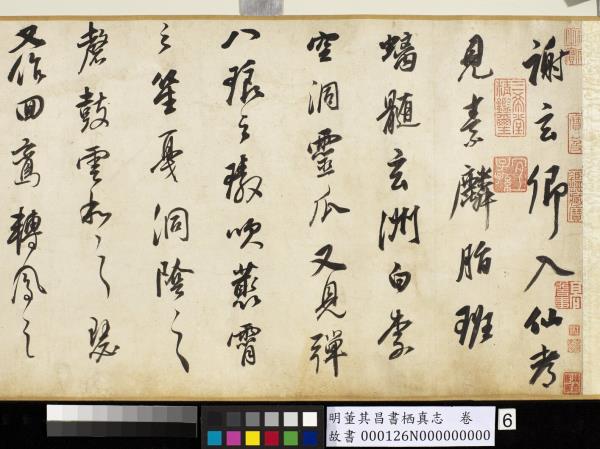 謝玄卿入仙考
見素麟脂班
螭髓玄洲白柰
空洞靈瓜又見彈
八琅之璈吹叢霄
之笙戛洞陰之
磬鼓雲和之瑟
又作回鸞轉鳳之
三希堂精鑑璽
宜子孫
明董其昌書栖真志 卷
故書 000126N000000000
6